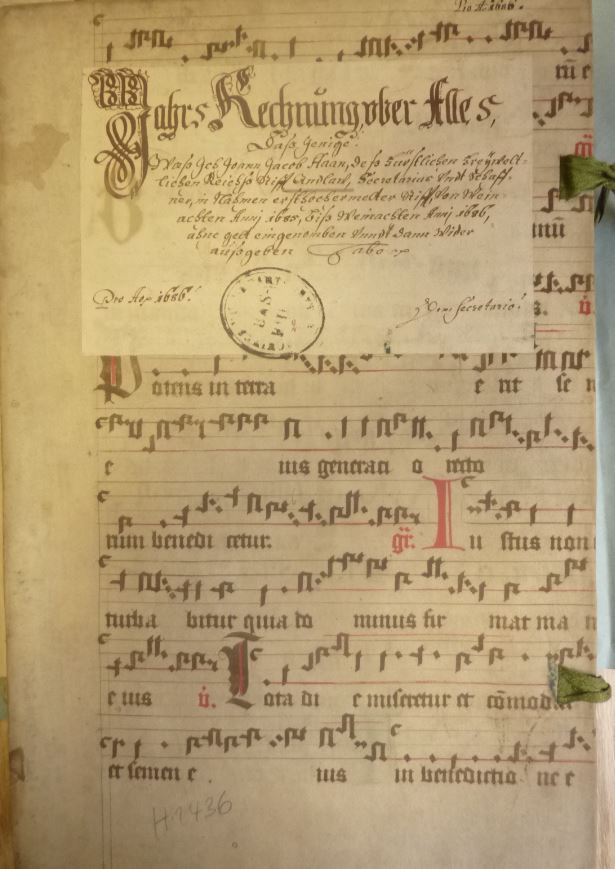 Pro Aō. 1686.
Jahrs Rechnung vber Alles,
Dass Jenige.
Wass Jch Johann Jacob Haan, dess Fürstlichen Freÿwelt-
lichen Reichss Stifft Andlaw, Secretarius Vndt Schaff-
ner, in Nahmen ersthochermelter Stifft, Von Wein-
achten Anni 1685, Biss Weinachten Anni 1686,
ahne gelt eingenomben Vnndt dann Wider
aussgeben
Pro Aō. 1686.
Secretario.
BAS-
RHIN
Potens in terra e rit se
e ius generati o recto
rum bene di cetur. gr. Iu stus non
turba bitur quia do minus fir mat ma n
e ius v. Tota di e miseretur et cōmoda
et semen e ius in benedictio ne e
H. 2436